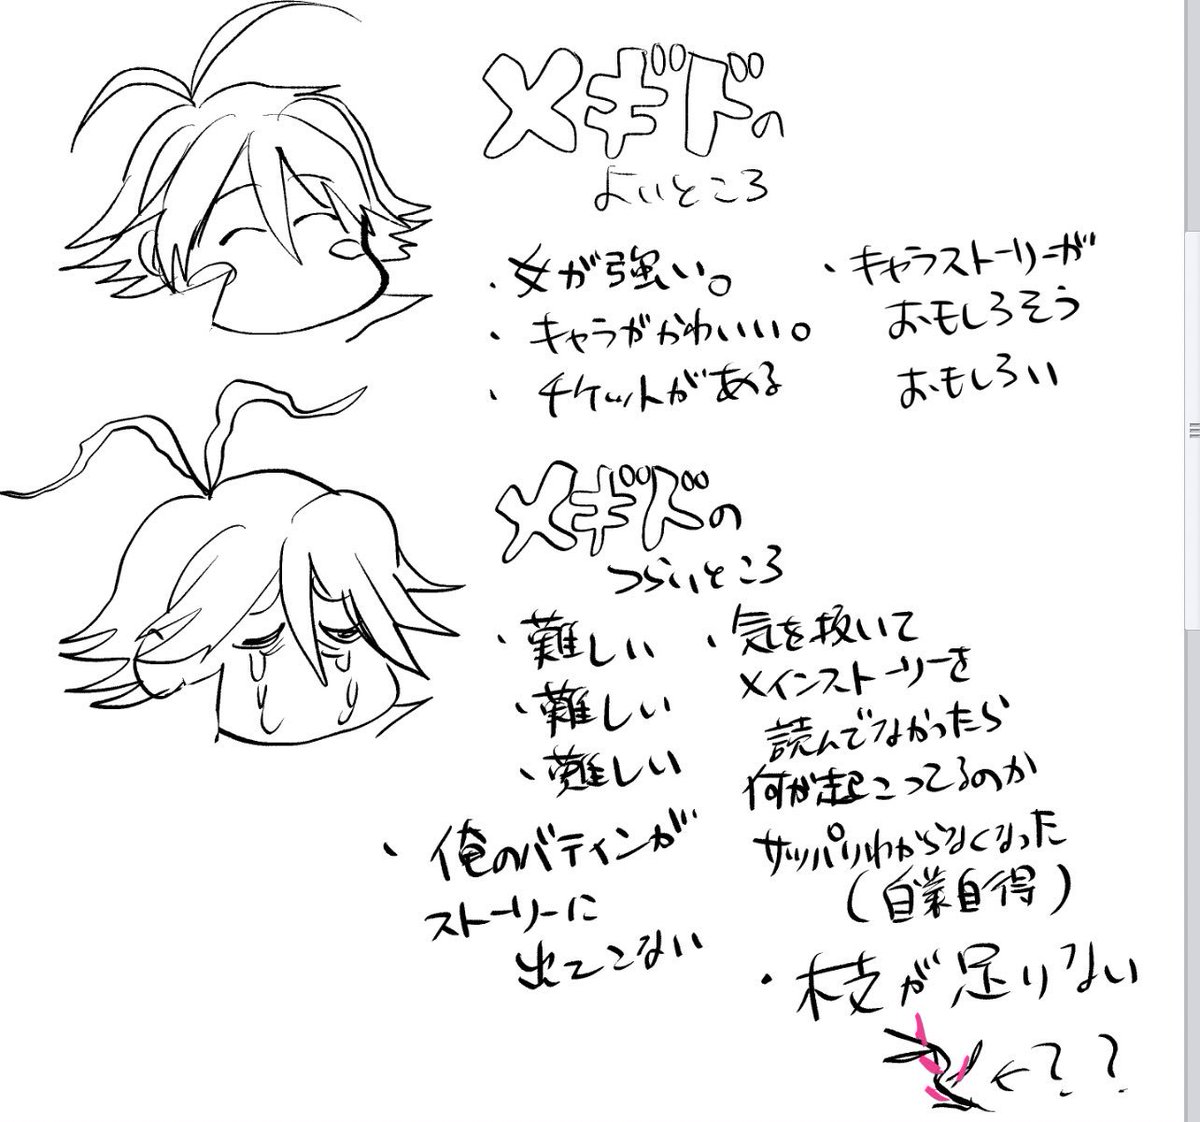 メギドの
よいところ
・女が強い。
・キャラがかわいい。
・チケットがある
・キャラストーリーが
おもしろそう
おもしろい
メギドの
つらいところ
・難しい
・難しい
・難しい
・俺のバティンが
ストーリーに
出てこない
・気を抜いて
メインストーリーを
読んでなかったら
何が起こってるのか
サッパリわからなくなった
(自業自得)
・枝が足りない
←??